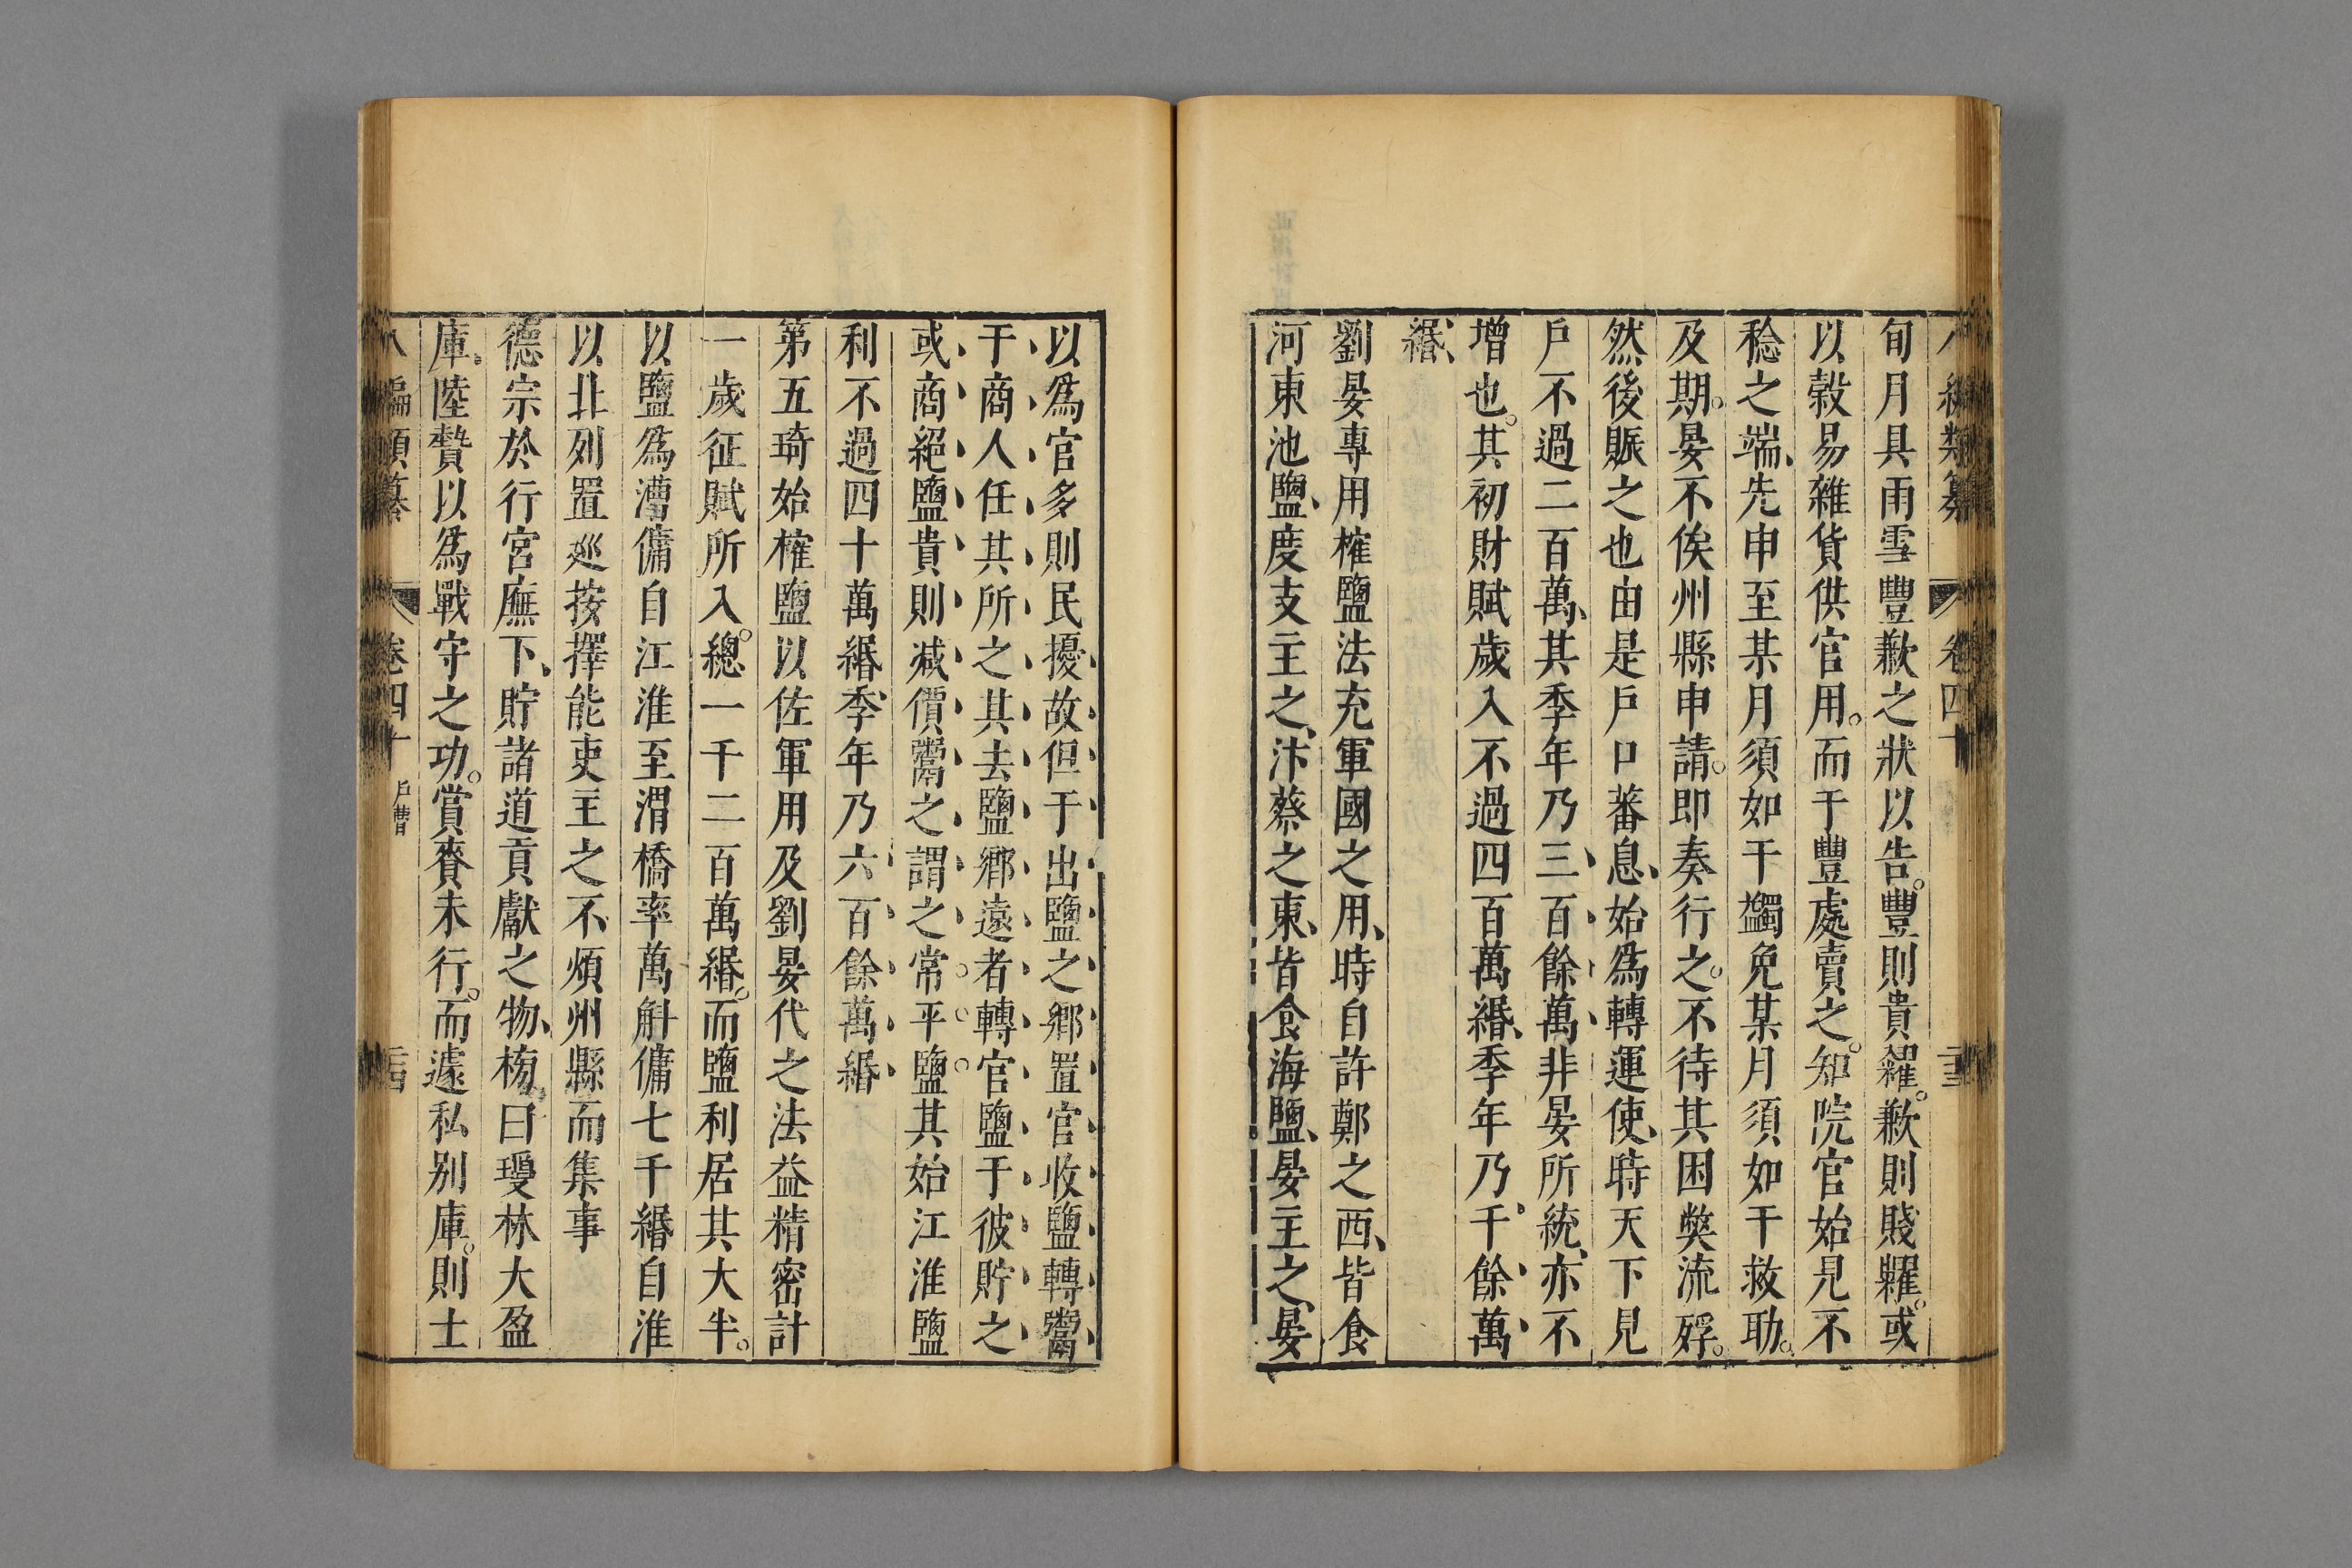 八編類纂 卷四十 二十三
旬月具雨雪豐歉之狀以告。豐則貴糴。歉則賤糶。或
以穀易雜貨供官用。而于豐處賣之。知院官始見不
稔之端、先申至某月須如干蠲免某月須如干救助。
及期。晏不俟州縣申請。即奏行之。不待其困獘流殍。
然後賑之也由是戶口蕃息、始爲轉運使、時天下見
戶不過二百萬、其季年乃三百餘萬、非晏所統、亦不
增也。其初財賦歲入不過四百萬緡、季年乃千餘萬
緡、
劉晏專用榷鹽法充軍國之用、時自許鄭之西、皆食
河東池鹽、度支主之、汴蔡之東、皆食海鹽、晏主之、晏
以爲官多則民擾故但于出鹽之鄉置官收鹽轉鬻
于商人任其所之其去鹽鄉遠者轉官鹽于彼貯之
或商絕鹽貴則減價鬻之謂之常平鹽其始江淮鹽
利不過四十萬緡、季年乃六百餘萬緡
第五琦始榷鹽以佐軍用及劉晏代之法益精密計
一歲征賦所入。總一千二百萬緡。而鹽利居其大半。
以鹽爲漕傭自江淮至渭橋率萬斛傭七千緡自淮
以北列置巡按擇能吏主之不煩州縣而集事
德宗於行宮廡下、貯諸道貢獻之物、牓曰瓊林大盈
庫。陸贄以爲戰守之功。賞賚未行。而遽私別庫。則士
八編類纂 卷四十 戶曹 二十四